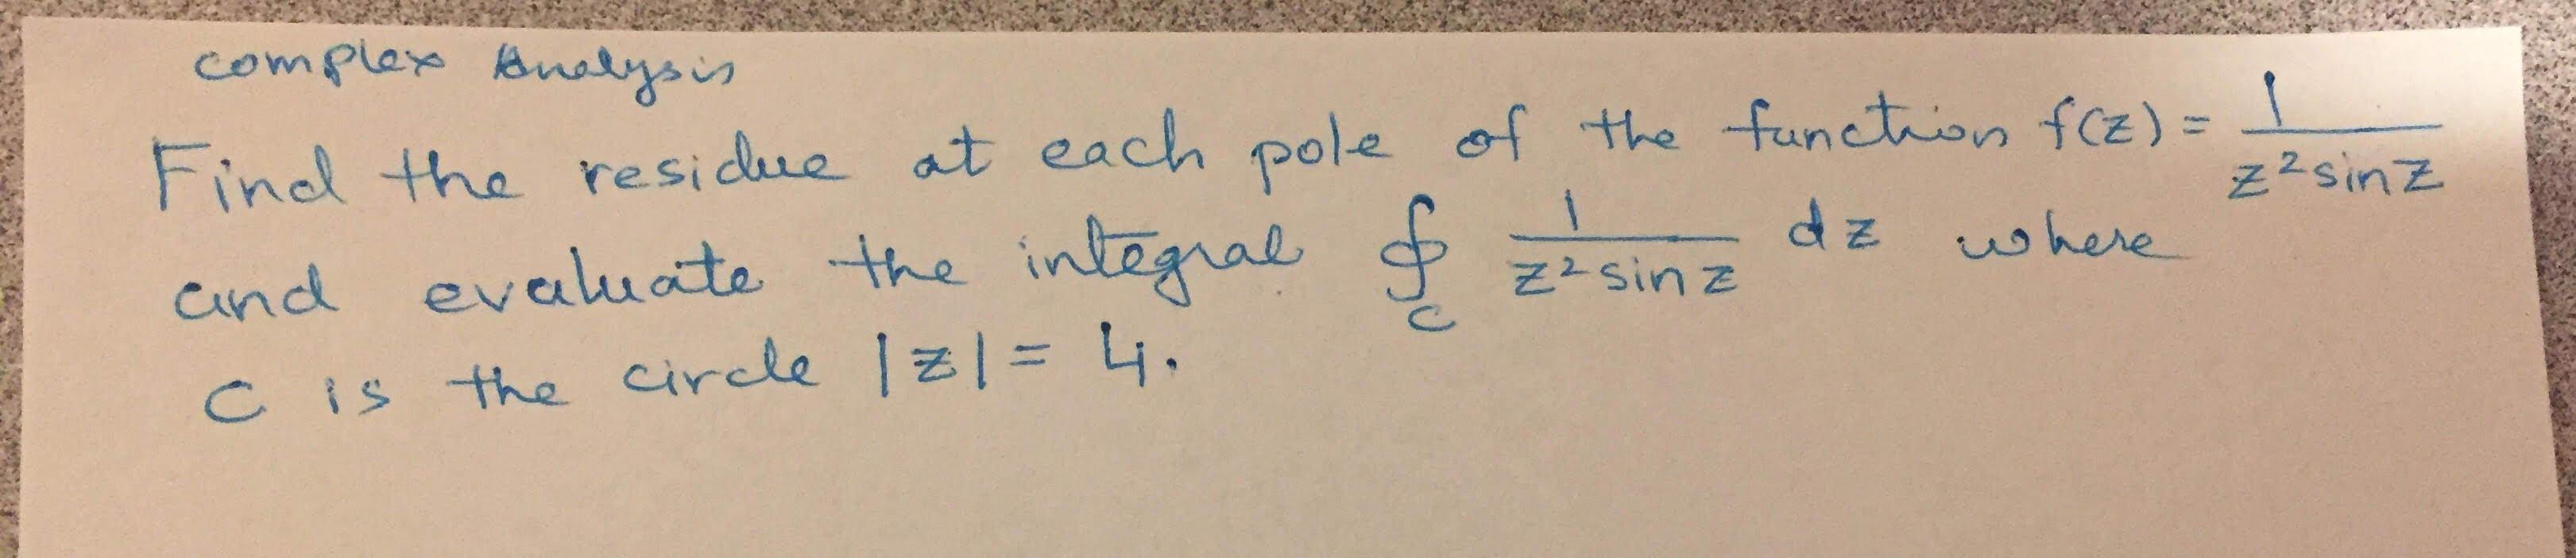 complex Analysis
Find the residue at each pole of the function f(z) = 1/(z² sin z)
and evaluate the integral ∮_C 1/(z² sin z) dz where
C is the circle |z| = 4.